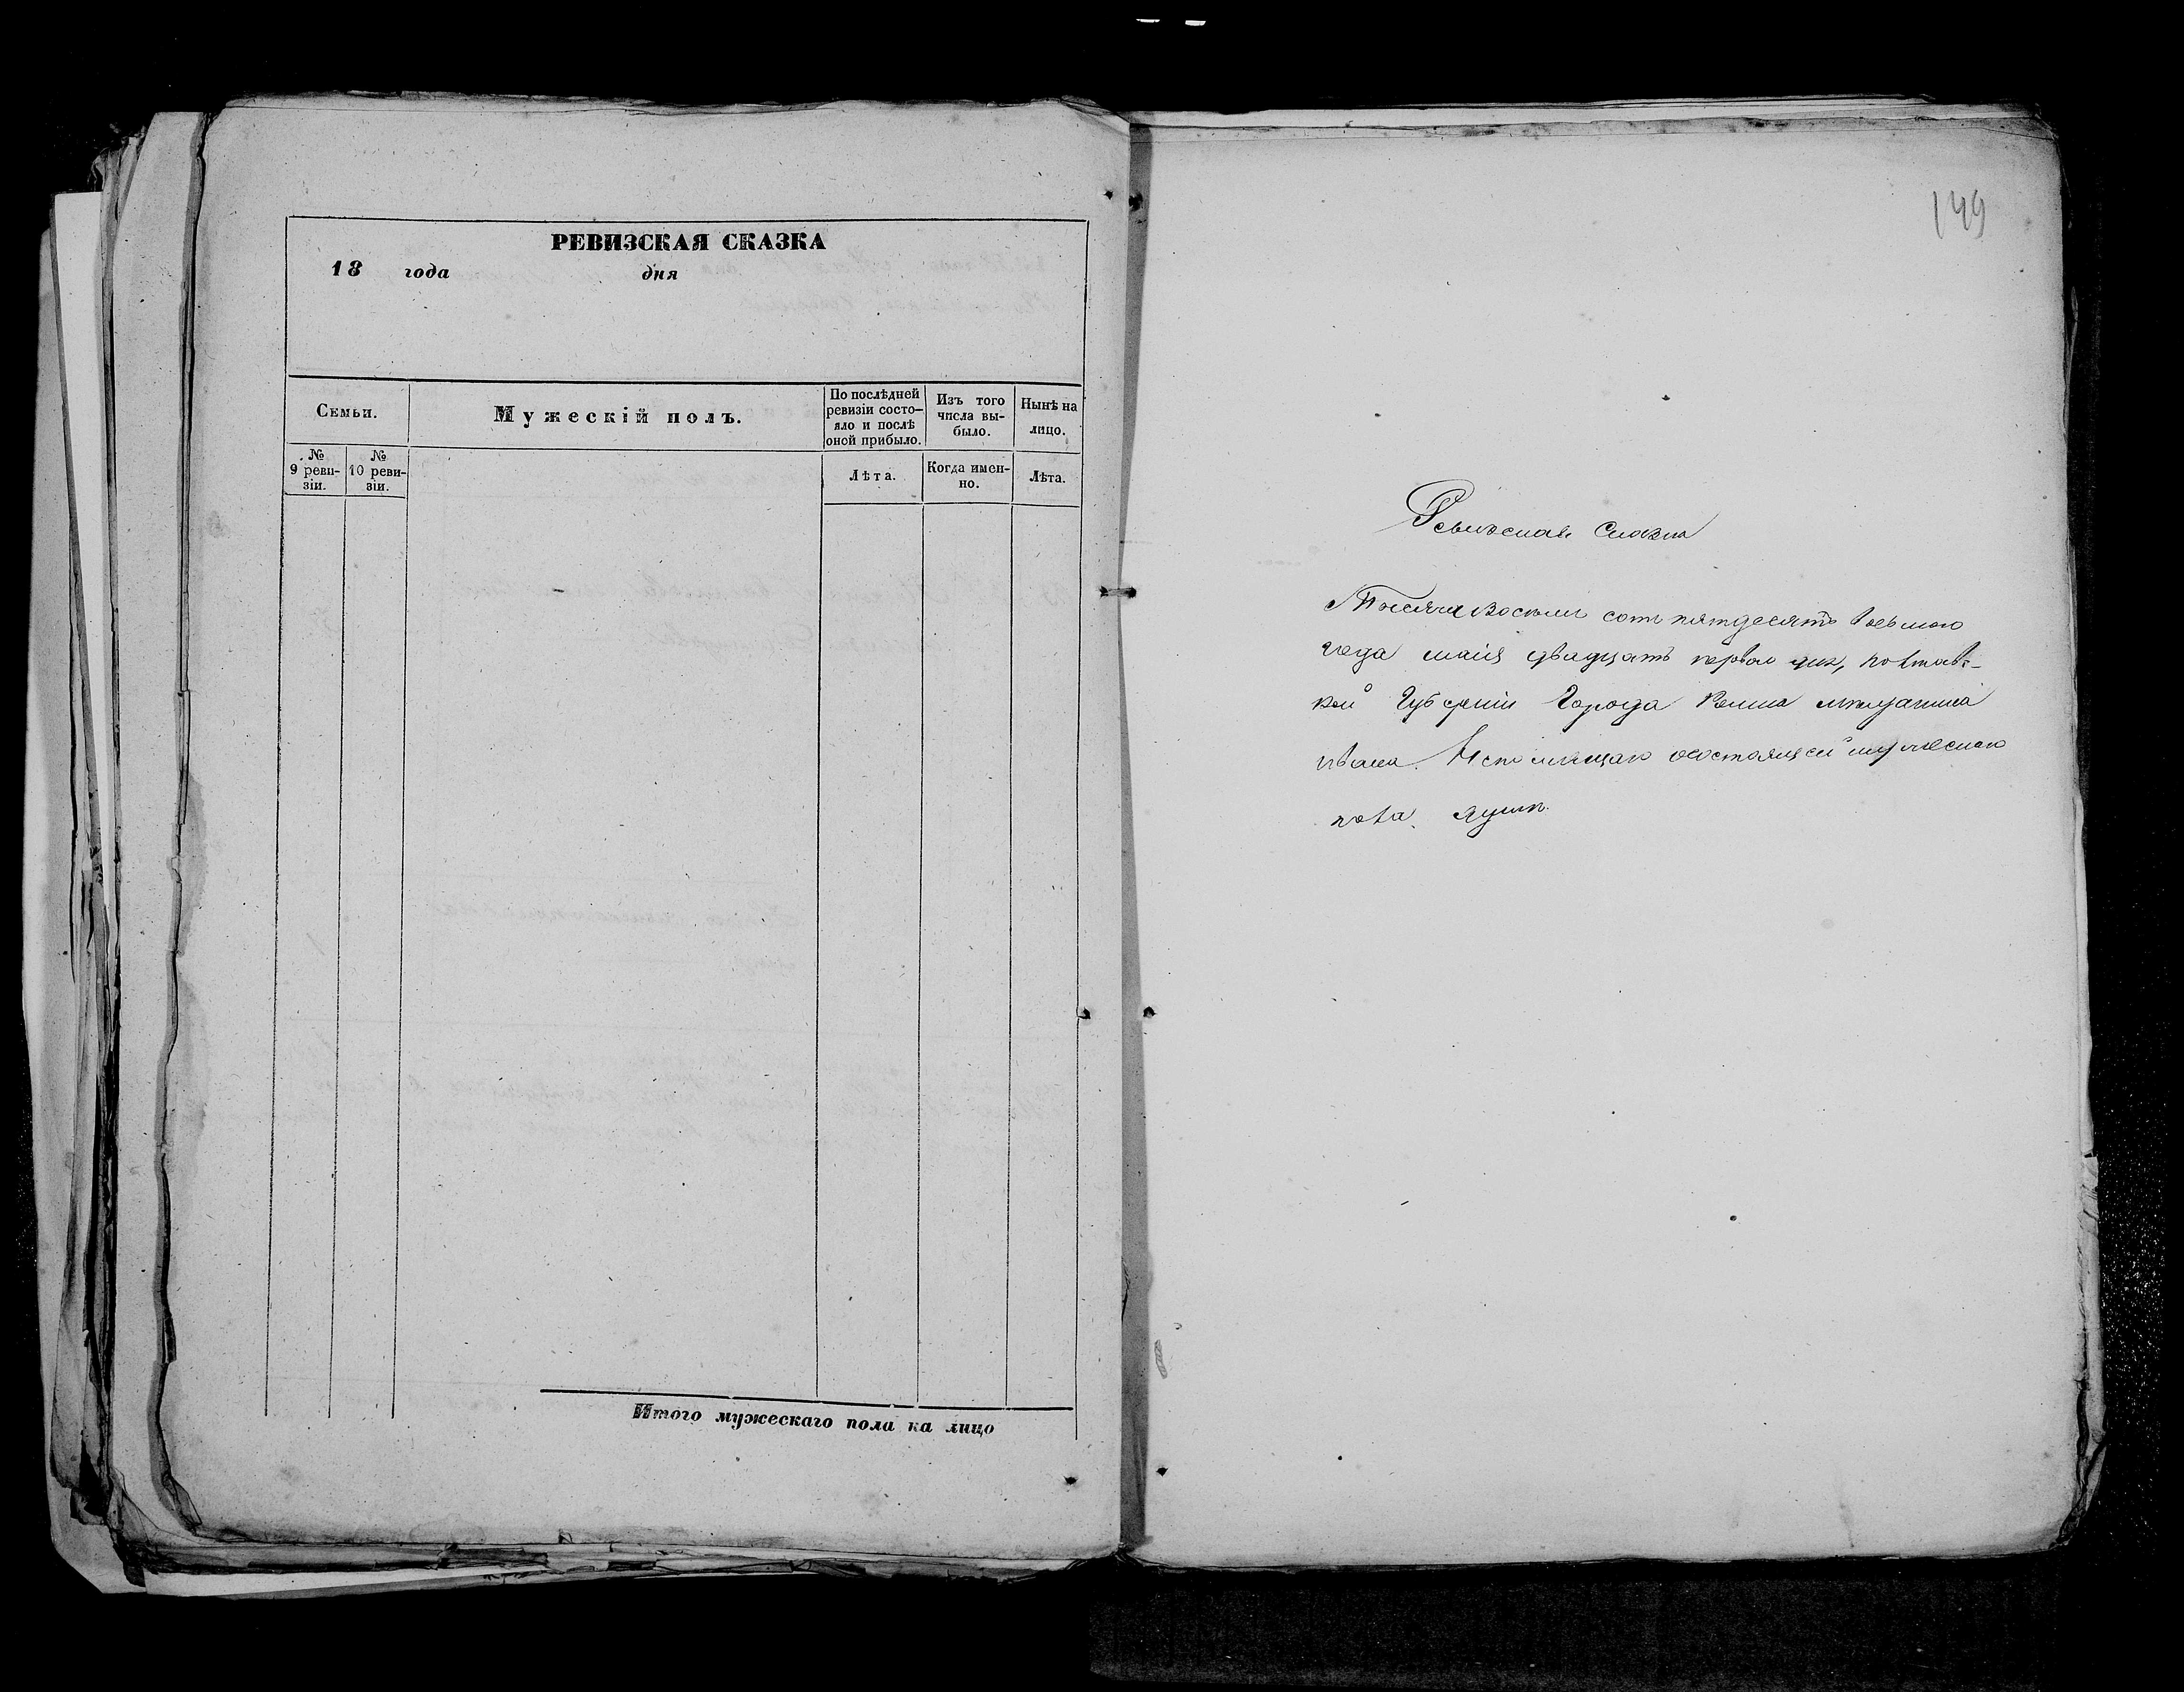 РЕВИЗСКАЯ СКАЗКА
18 года дня
Семьи.
Мужескій полъ.
По послѣдней ревизіи состо-
яло и послѣ
оной прибыло.
Изъ того
числа вы-
было.
Нынѣ на
лицо.
№
9 реви-
зіи.
№
10 реви-
зіи.
Лѣта.
Когда имен-
но.
Лѣта.
Итого мужескаго пола на лицо
149
Ревизская Сказка
Тысяча Восемь сотъ пятдесятъ восьмого
года маія двадцать первого дня, полтавс-
кой Губерніи Города мещанина
Ивана состоящей мужеского
пола душѣ.